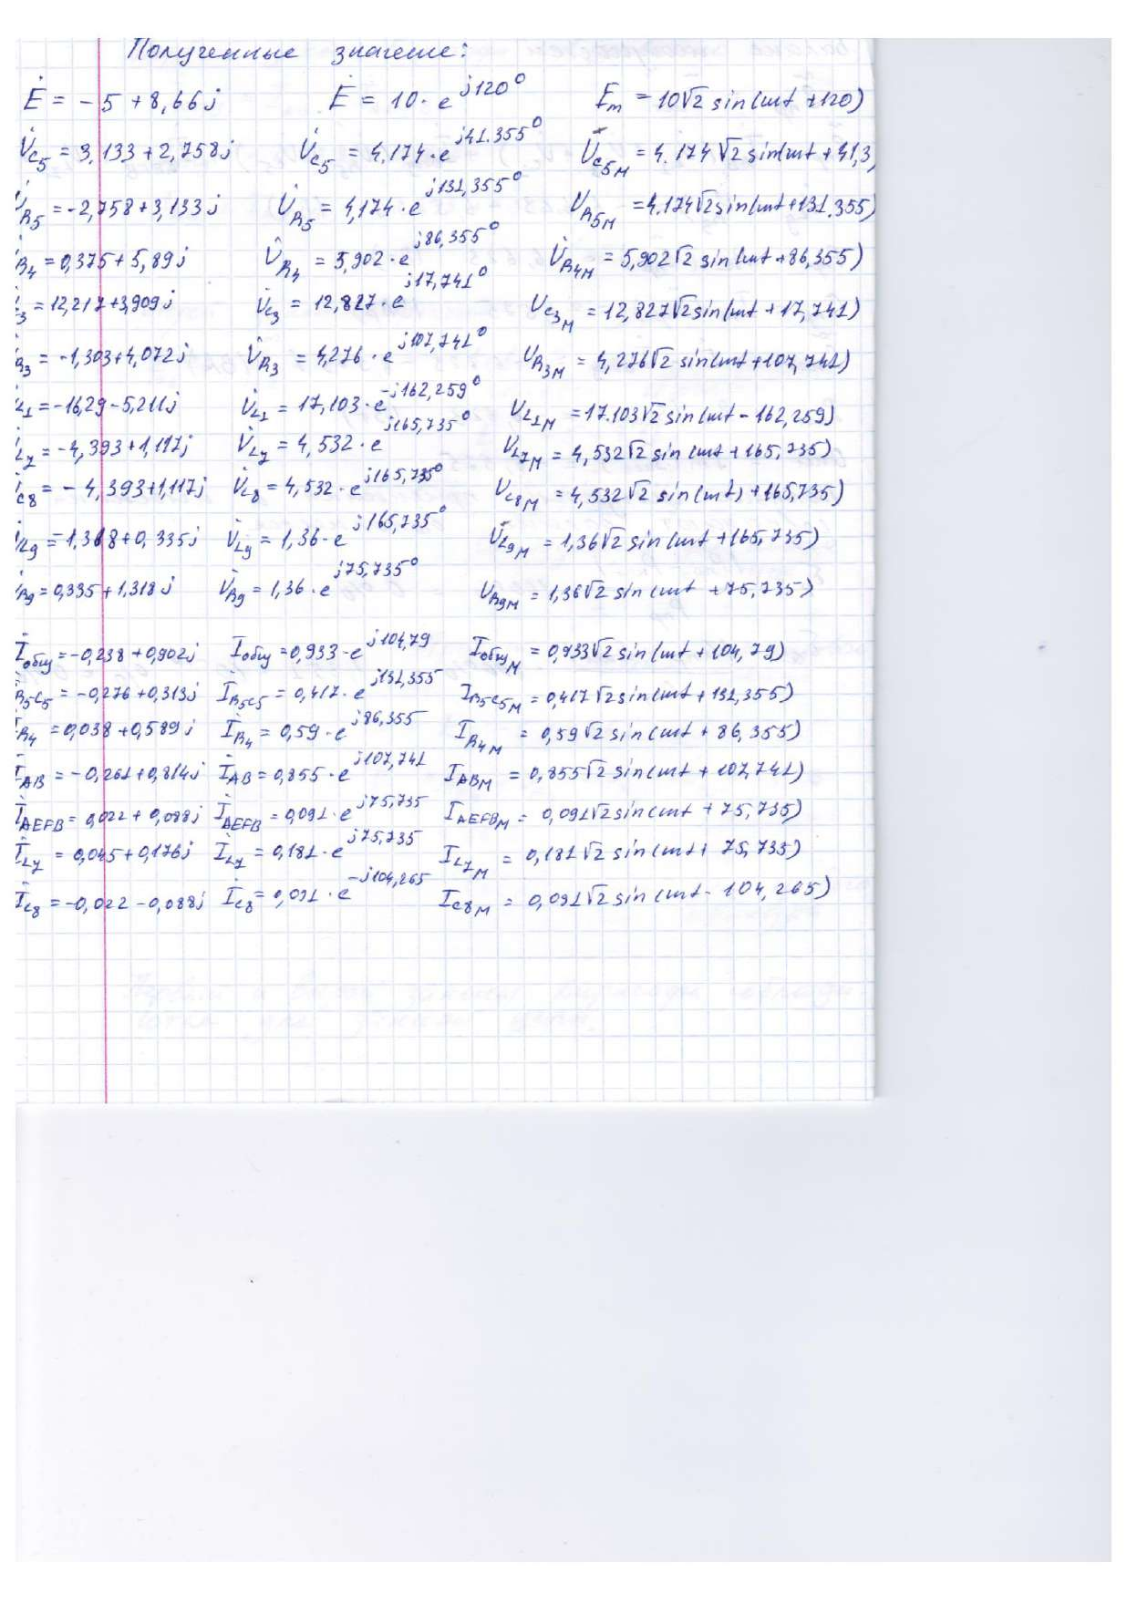 Полученные значение:
Ė = -5 + 8,66j Ė = 10·e^j120° Em = 10√2 sin(ωt + 120)
U̇C5 = 3,133 + 2,758j U̇C5 = 4,174·e^j41.355° UC5M = 4.174√2 sin(ωt + 41,3
U̇R5 = -2,758 + 3,133j U̇R5 = 4,174·e^j131,355° UR5M = 4.174√2 sin(ωt + 131.355)
R4 = 0,375 + 5,89j U̇R4 = 5,902·e^j86,355° U̇R4M = 5,902√2 sin(ωt + 86,355)
C3 = 12,217 + 3,909j U̇C3 = 12,827·e^j17,741° UC3M = 12,827√2 sin(ωt + 17,741)
R3 = -1,303 + 4,072j U̇R3 = 4,276·e^j107,741° UR3M = 4,276√2 sin(ωt + 107,741)
L1 = -16,29 - 5,211j U̇L1 = 17,103·e^-j162,259° UL1M = 17.103√2 sin(ωt - 162,259)
L7 = -4,393 + 1,117j U̇L7 = 4,532·e^j165,735° UL7M = 4,532√2 sin(ωt + 165,735)
C8 = -4,393 + 1,117j U̇C8 = 4,532·e^j165,735° UC8M = 4,532√2 sin(ωt) + 165,735)
L9 = -1,318 + 0,335j U̇L9 = 1,36·e^j165,735° UL9M = 1,36√2 sin(ωt + 165,735)
R9 = 0,335 + 1,318j U̇R9 = 1,36·e^j75,735° UR9M = 1,36√2 sin(ωt + 75,735)
İобщ = -0,238 + 0,902j İобщ = 0,933·e^j104,79 İобщM = 0,933√2 sin(ωt + 104,79)
R5C5 = -0,276 + 0,313j İR5C5 = 0,417·e^j131,355 IR5C5M = 0,417√2 sin(ωt + 131,355)
İR4 = 0,038 + 0,589j İR4 = 0,59·e^j86,355 IR4M = 0,59√2 sin(ωt + 86,355)
İAB = -0,261 + 0,814j İAB = 0,855·e^j107,741 IABM = 0,855√2 sin(ωt + 107,741)
İAEFB = 0,022 + 0,088j İAEFB = 0,091·e^j75,735 IAEFBM = 0,091√2 sin(ωt + 75,735)
İL7 = 0,045 + 0,176j İL7 = 0,181·e^j75,735 IL7M = 0,181√2 sin(ωt + 75,735)
İC8 = -0,022 - 0,088j İC8 = 0,091·e^-j104,265 IC8M = 0,091√2 sin(ωt - 104,265)